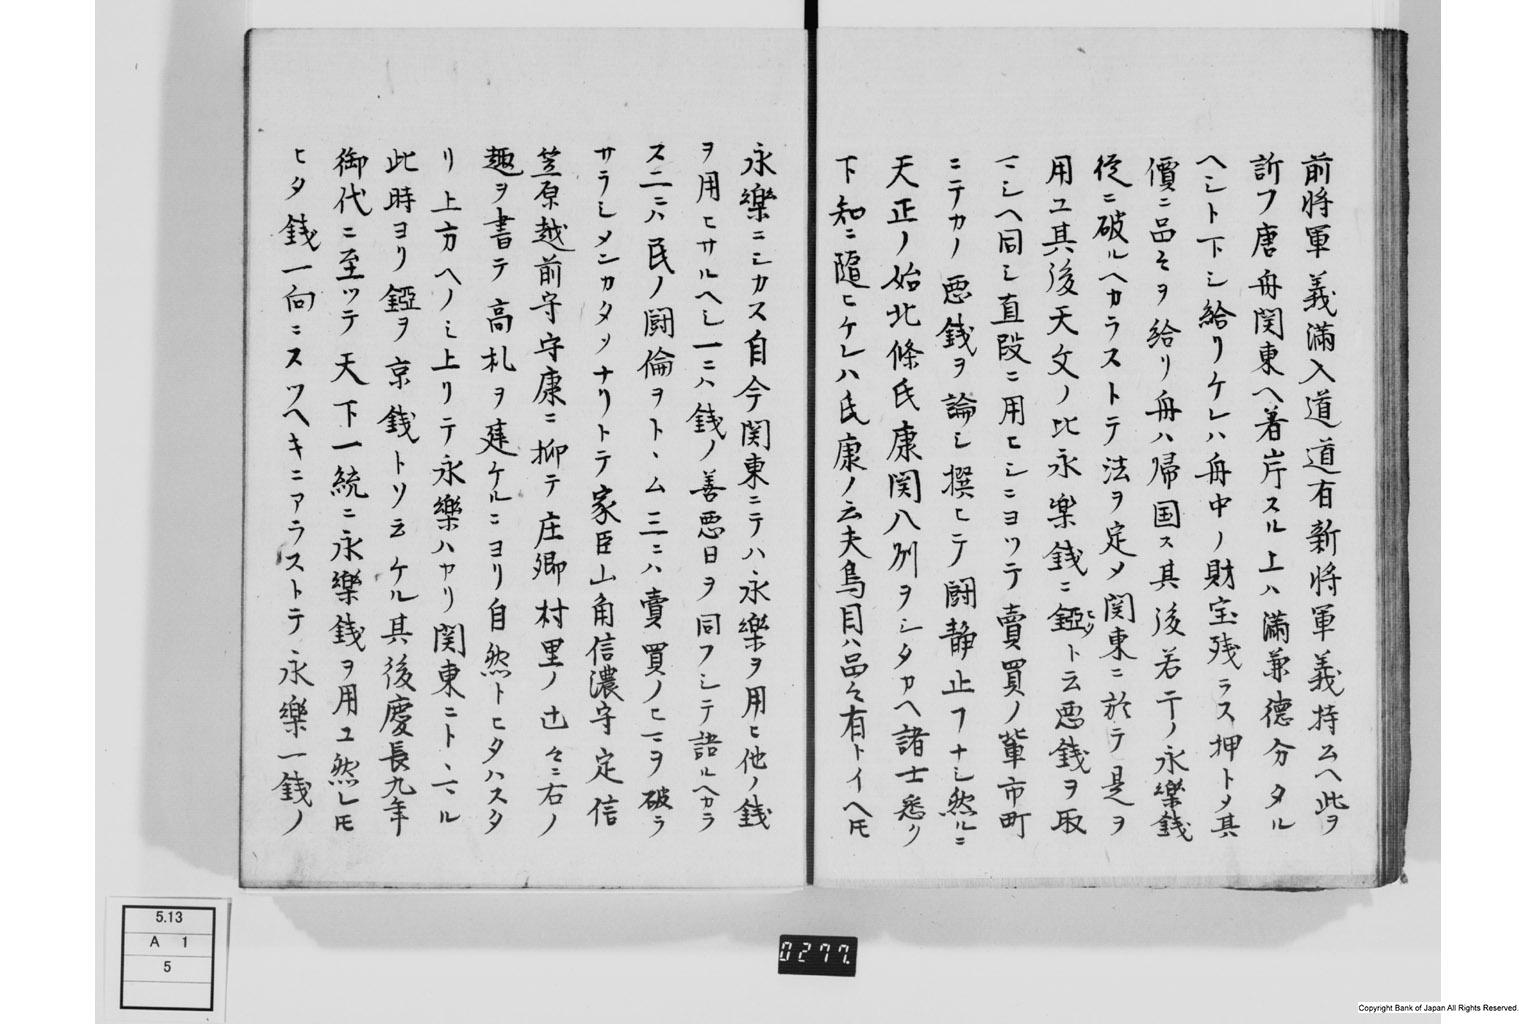 前将軍義滿入道道有新将軍義持公ヘ此ヲ
訴フ唐舟関東ヘ着岸スル上ハ滿兼徳分タル
ヘシト下シ給リケレハ舟中ノ財宝残ラス押トメ其
價ニ品々ヲ給リ舟ハ帰国ス其後若干ノ永樂銭
徒ニ破ルヘカラストテ法ヲ定メ関東ニ於テ是ヲ
用ユ其後天文ノ比永楽銭ニ鐚ト云悪銭ヲ取
マシヘ同シ直段ニ用ヒシニヨツテ賣買ノ輩市町
ニテカノ悪銭ヲ論シ撰ヒテ闘静止フナシ然ルニ
天正ノ始北條氏康関八州ヲシタカヘ諸士悉ク
下知ニ隨ヒケレハ氏康ノ云夫鳥目ハ品々有トイヘ𪜈
永樂ニシカス自今関東ニテハ永樂ヲ用ヒ他ノ銭
ヲ用ヒサルヘシ一ニハ銭ノ善悪日ヲ同フシテ語ルヘカラ
ス二ニハ民ノ闘倫ヲトヽム三ニハ賣買ノヒマヲ破ラ
サラシメンカタメナリトテ家臣山角信濃守定信
笠原越前守守康ニ抑テ庄郷村里ノ辻々ニ右ノ
趣ヲ書テ高札ヲ建ケルニヨリ自然トヒタハスタ
リ上方ヘノミ上リテ永樂ハヤリ関東ニトヽマル
此時ヨリ鐚ヲ京銭トソ云ケル其後慶長九年
御代ニ至ッテ天下一統ニ永樂銭ヲ用ユ然レ𪜈
ヒタ銭一向ニスツヘキニアラストテ永樂一銭ノ
5.13
A 1
5
0277.
Copyright Bank of Japan All Rights Reserved.